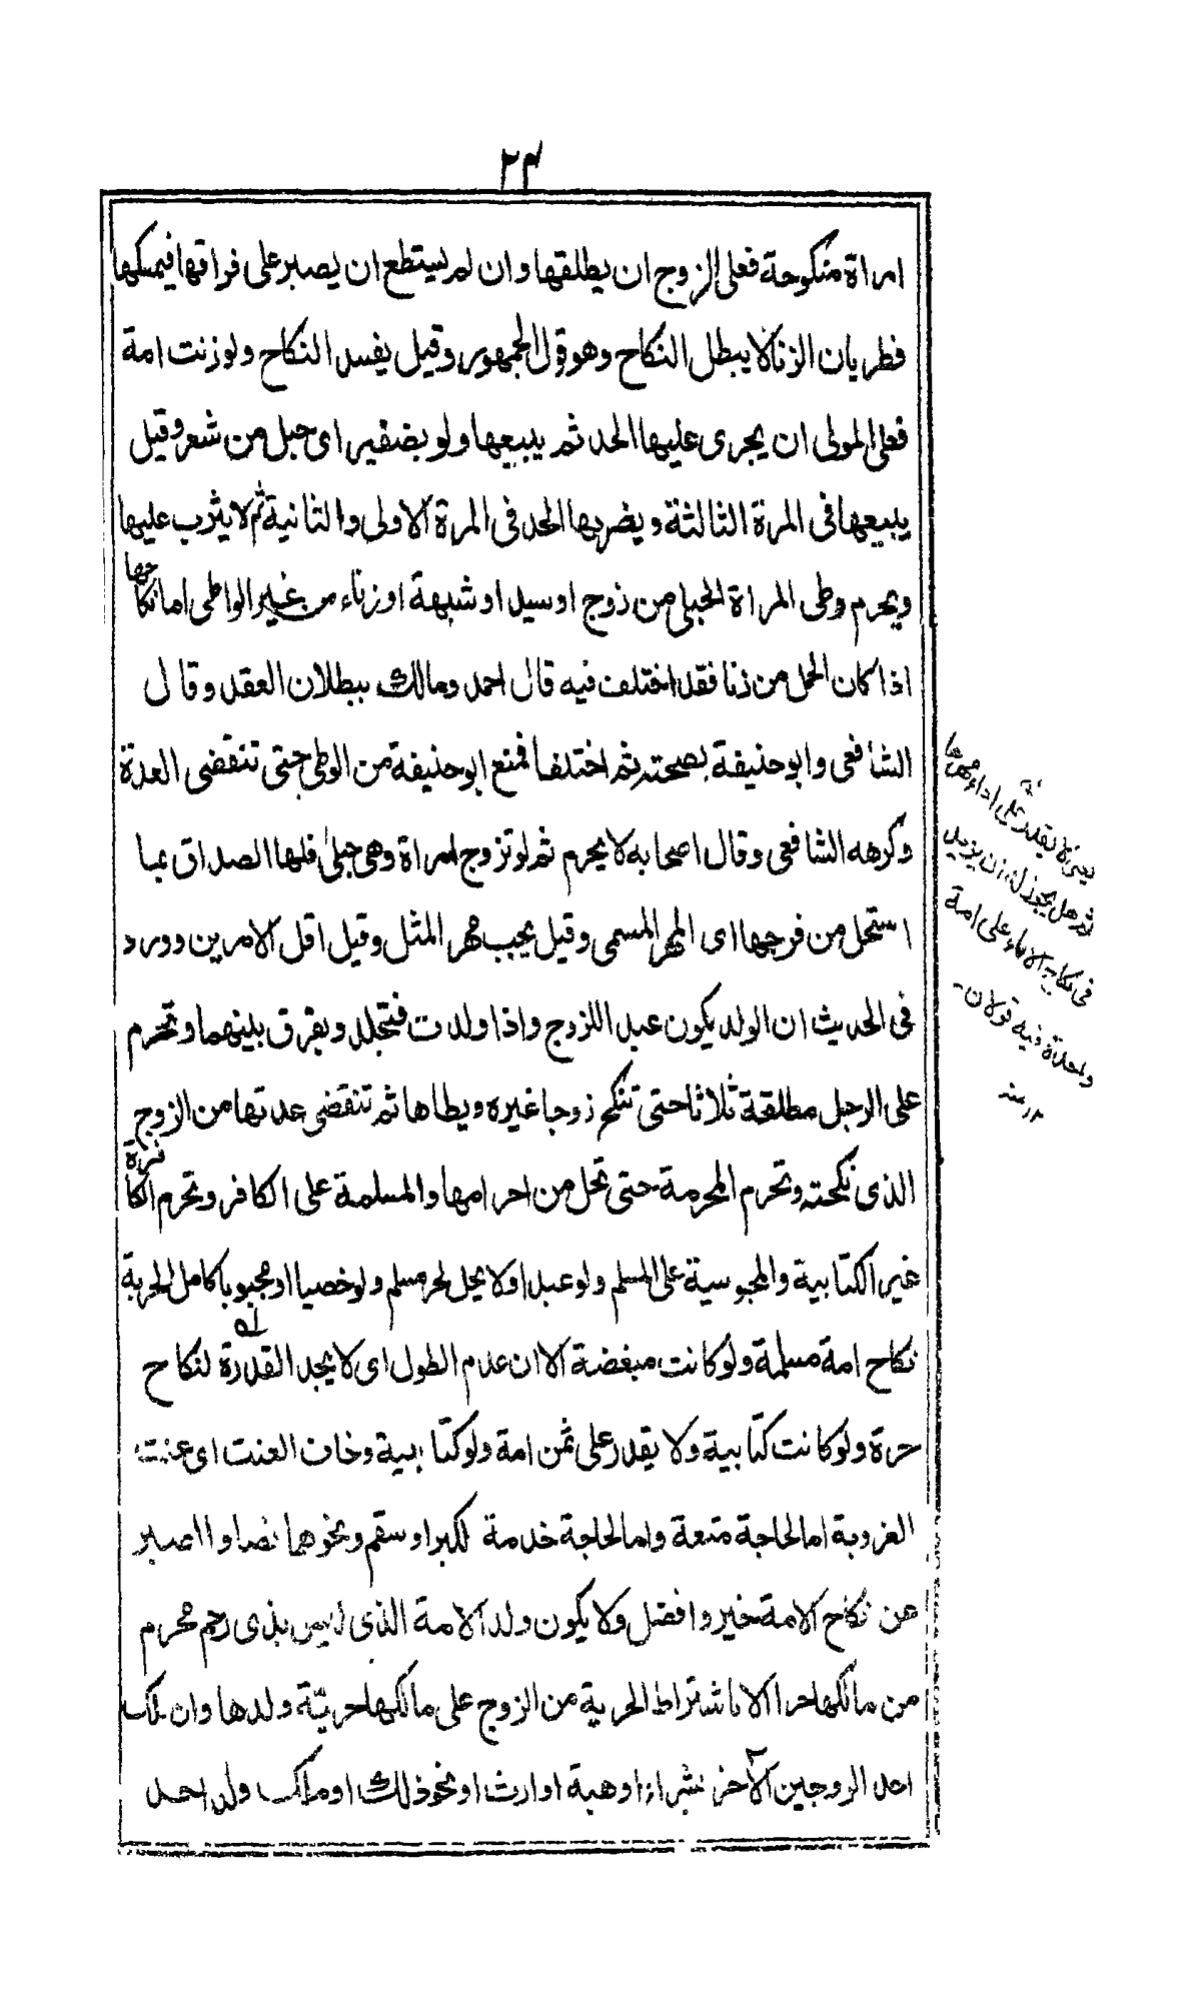 ٢٤
امراة منكوحة فعلى الزوج ان يطلقها وان لم يستطع ان يصبر على فراقها فيمسكها
فطريان الزنا لا يبطل النكاح وهو قول الجمهور وقيل يفسد النكاح ولو زنت امة
فعلى المولى ان يجرى عليها الحد ثم يبيعها ولو بضفير اى حبل من شعر وقيل
يبيعها فى المرة الثالثة ويضربها الحد فى المرة الاولى والثانية ثم لا يثرب عليها
ويحرم وطى المراة الحبلى من زوج او سيد او شبهة او زناء من غير الواطى اما نكاحها
اذا كان الحمل من زنا فقد اختلف فيه قال احمد ومالك ببطلان العقد وقال
الشافعى وابو حنيفة بصحته ثم اختلفا فمنع ابو حنيفة من الوطى حتى تنقضى العدة
وكرهه الشافعى وقال اصحابه لا يحرم ثم لو تزوج امراة وهى حبلى فلها الصداق بما
استحل من فرجها اى المهر المسمى وقيل يجب مهر المثل وقيل اقل الامرين وورد
فى الحديث ان الولد يكون عبدا للزوج واذا ولدت فتجلد ويفرق بينهما وتحرم
على الرجل مطلقة ثلاثا حتى تنكح زوجا غيره ويطاها ثم تنقضى عدتها من الزوج
الذى نكحته وتحرم المحرمة حتى تحل من احرامها والمسلمة على الكافر وتحرم الكافرة
غير الكتابية والمجوسية على المسلم ولو عبدا ولا يحل لحر مسلم ولو خصيا او مجبوبا كامل الحرية
نكاح امة مسلمة ولو كانت مبغضة الا ان عدم الطول اى لا يجد القدرة له لنكاح
حرة ولو كانت كتابية ولا يقدر على ثمن امة ولو كتابية وخاف العنت اى عنت
العزوبة اما لحاجة متعة واما لحاجة خدمة لكبر او سقم ونحوهما نصا والصبر
عن نكاح الامة خير وافضل ولا يكون ولد الامة الذى ليس بذى رحم محرم
من مالكها حرا الا باشتراط الحرية من الزوج على مالكها حريّة ولدها وان ملك
احد الزوجين الآخر بشراء او هبة او ارث او نحو ذلك او ملك ولد احمد
يعنى لا يقدر على اداء مهرها
ثم هل يجوز له ان يزيد
فى نكاح الاماء على امة
واحدة فيه قولان
١٢ منه